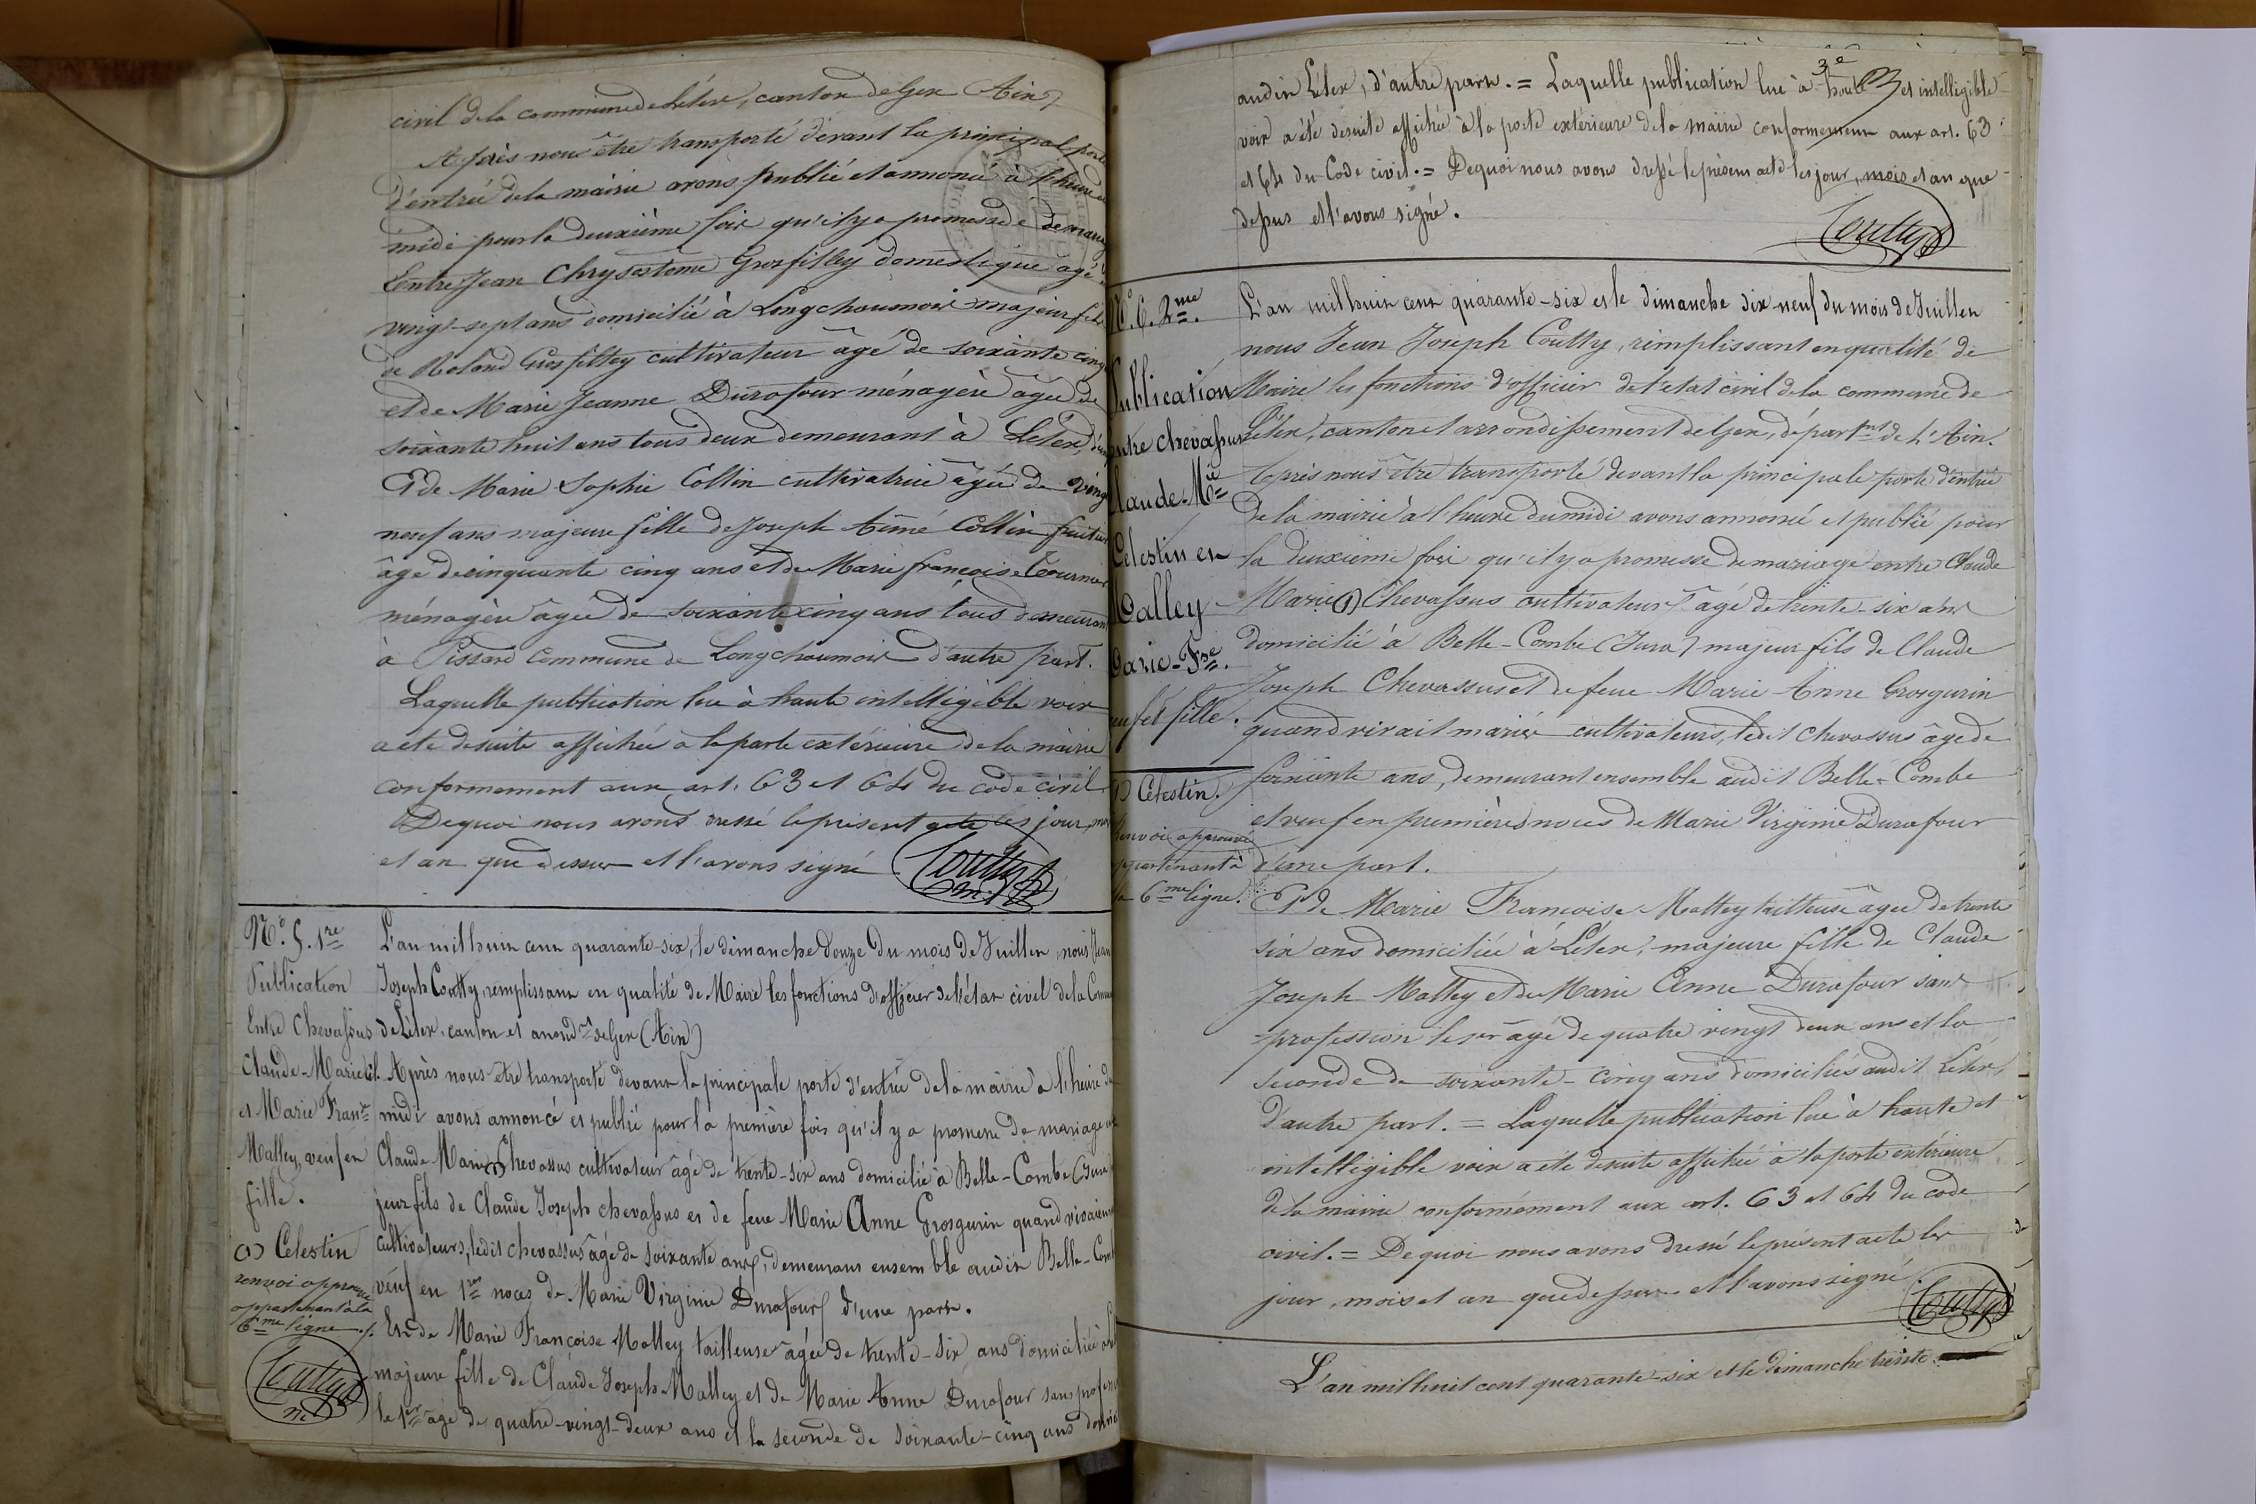 civil de la commune de Lélex, canton de Gex (Ain)
Après nous être transporté dévant la principal porte
d'éntrée de la mairie avons publié et annoncé à l'heure de
midi pour la deuxième fois qu'il y a promesse de mariage
Entre Jean Chrysostôme Grosfilley domestique âgé de
vingt-sept ans domicilié à Longchaumois majeur fils
de Roland Grosfilley cultivateur âgé de soixante cinq
et de Marie Jeanne Durafour ménagère âgée de
soixante huit ans tous deux demeurant à Lélex, d'une
Et de Marie Sophie Collin cultivatrice âgée de vingt
neuf ans majeure fille de Joseph Aimé Collin fruitier
âgé de cinquante cinq ans et de Marie françoise Tournier
ménagère âgée de soixante cinq ans tous demeurant
à Pissard Commune de Longchaumois d'autre part.
Laquelle publication lue à haute intelligible voix
a été desuite affichée a la porte extérieure de la mairie
conformement aux art. 63 et 64 du code civil.
Dequoi nous avons dressé le présent acte les jour, mois
et an que dessus et l'avons signé Coutty
m.
N.° 5. 1re
Publication
Entre Chevassus
Claude-Marie Cél.
et Marie Franse
Malley, veuf en
fille.
(1) Célestin
renvoi approuvé
appartenant à la
6me ligne ./.
Coutty
m.
L'an mil huit cent quarante-six, le dimanche douze du mois de Juillet, nous Jean
Joseph Coutty, remplissant en qualité de Maire les fonctions d'officier de l'état civil de la Commune
de Lélex, canton et arrondt de Gex (Ain)
Après nous être transporté devant la principale porte d'entrée de la mairie à l'heure de
midi avons annoncé et publié pour la première fois qu'il y a promesse de mariage entre
Claude Marie (1) Chevassus cultivateur âgé de trente-six ans domicilié à Belle-Combe (Jura)
jeur fils de Claude Joseph chevassus et de feue Marie Anne Grosgurin quand vivaient
cultivateurs, ledit chevassus âgé de soixante ans, demeurans ensemble audit Belle-Combe
veuf en 1res noces de Marie Virginie Durafour d'une part.
Et de Marie Françoise Malley tailleuse âgée de trente-six ans domiciliée à Lélex
majeure fille de Claude Joseph Malley et de Marie Anne Durafour sans profession
le 1er âgé de quatre-vingt-deux ans et la seconde de soixante-cinq ans domiciliés
3e
audit Lélex, d'autre part. = Laquelle publication lue à haute et intelligible
voix a été desuite affichée à la porte extérieure de la mairie conformément aux art. 63
et 64 du Code civil. = Dequoi nous avons dressé le présent acte les jour, mois et an que
dessus et l'avons signé.
Coutty
N.° 6. 2me
Publication
entre chevassus
Claude-Mie
Célestin et
Malley
Marie-Fse.
veuf et fille.
(1) Célestin.
renvoi approuvé
appartenant à
la 6me ligne.
L'an mil huit cent quarante-six et le dimanche dix neuf du mois de Juillet
nous Jean Joseph Coutty, remplissant en qualité de
Maire les fonctions d'officier de l'état civil de la commune de
Lélex, canton et arrondissement de Gex, départmt de L'Ain.
Après nous être transporté devant la principale porte d'entrée
de la mairie à l'heure du midi avons annoncé et publié pour
la deuxième fois qu'il y a promesse de mariage entre Claude
Marie (1) Chevassus cultivateur âgé de trente-six ans
domicilié à Belle-Combe (Jura) majeur fils de Claude
Joseph Chevassus et de feue Marie-Anne Grosgurin
quand vivait mariés cultivateurs, ledit chevassus âgé de
soixante ans, demeurant ensemble audit Belle-Combe
et veuf en premières noces de Marie Virginie Durafour
d'une part.
Et de Marie Françoise Malley tailleuse âgée de trente
six ans domiciliée à Lélex, majeure fille de Claude
Joseph Malley et de Marie Anne Durafour sans
profession le 1er âgé de quatre vingt deux ans et la
seconde de soixante-cinq ans domiciliés audit Lélex,
d'autre part. = Laquelle publication lue à haute et
intelligible voix a été desuite affichée à la porte extérieure
de la mairie conformément aux art. 63 et 64 du code
civil. = De quoi nous avons dressé le présent acte les
jour, mois et an que dessus et l'avons signé.
Coutty
L'an mil huit cent quarante-six et le dimanche treize